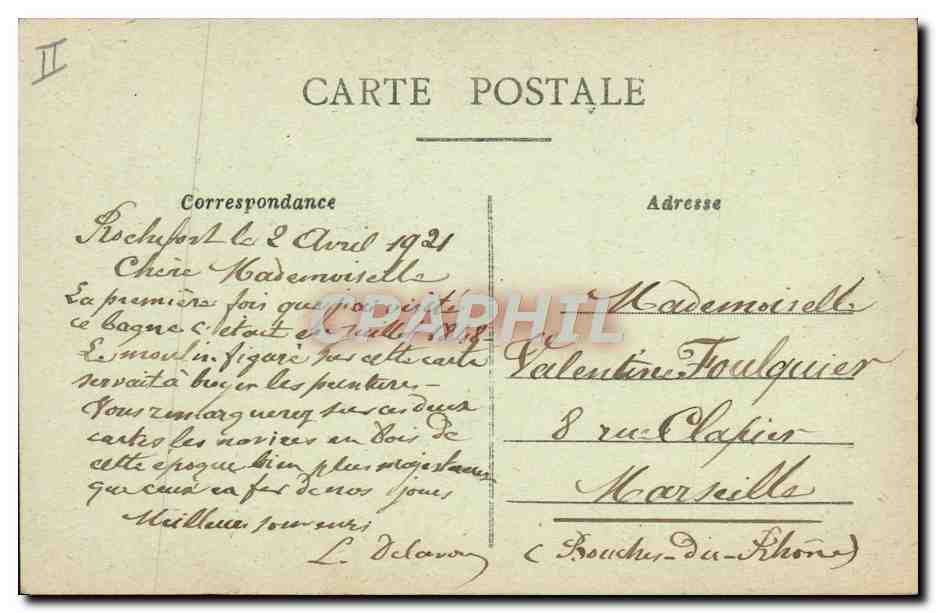 II
CARTE POSTALE
Correspondance
Rochefort le 2 Avril 1921
Chère Mademoiselle
La première fois que j'ai visité
ce bagne c'était en juillet
Le moulin figaré sur cette carte
servait à broyer les peintures -
Vous remarquerez sur ces deux
cartes les navires en bois de
cette époque bien plus majestueux
que ceux en fer de nos jours
Meilleurs souvenirs
L.
Adresse
Mademoiselle
Valentine Foulquier
8 rue Clapier
Marseille
(Bouches-du-Rhône)
CPAPHIL